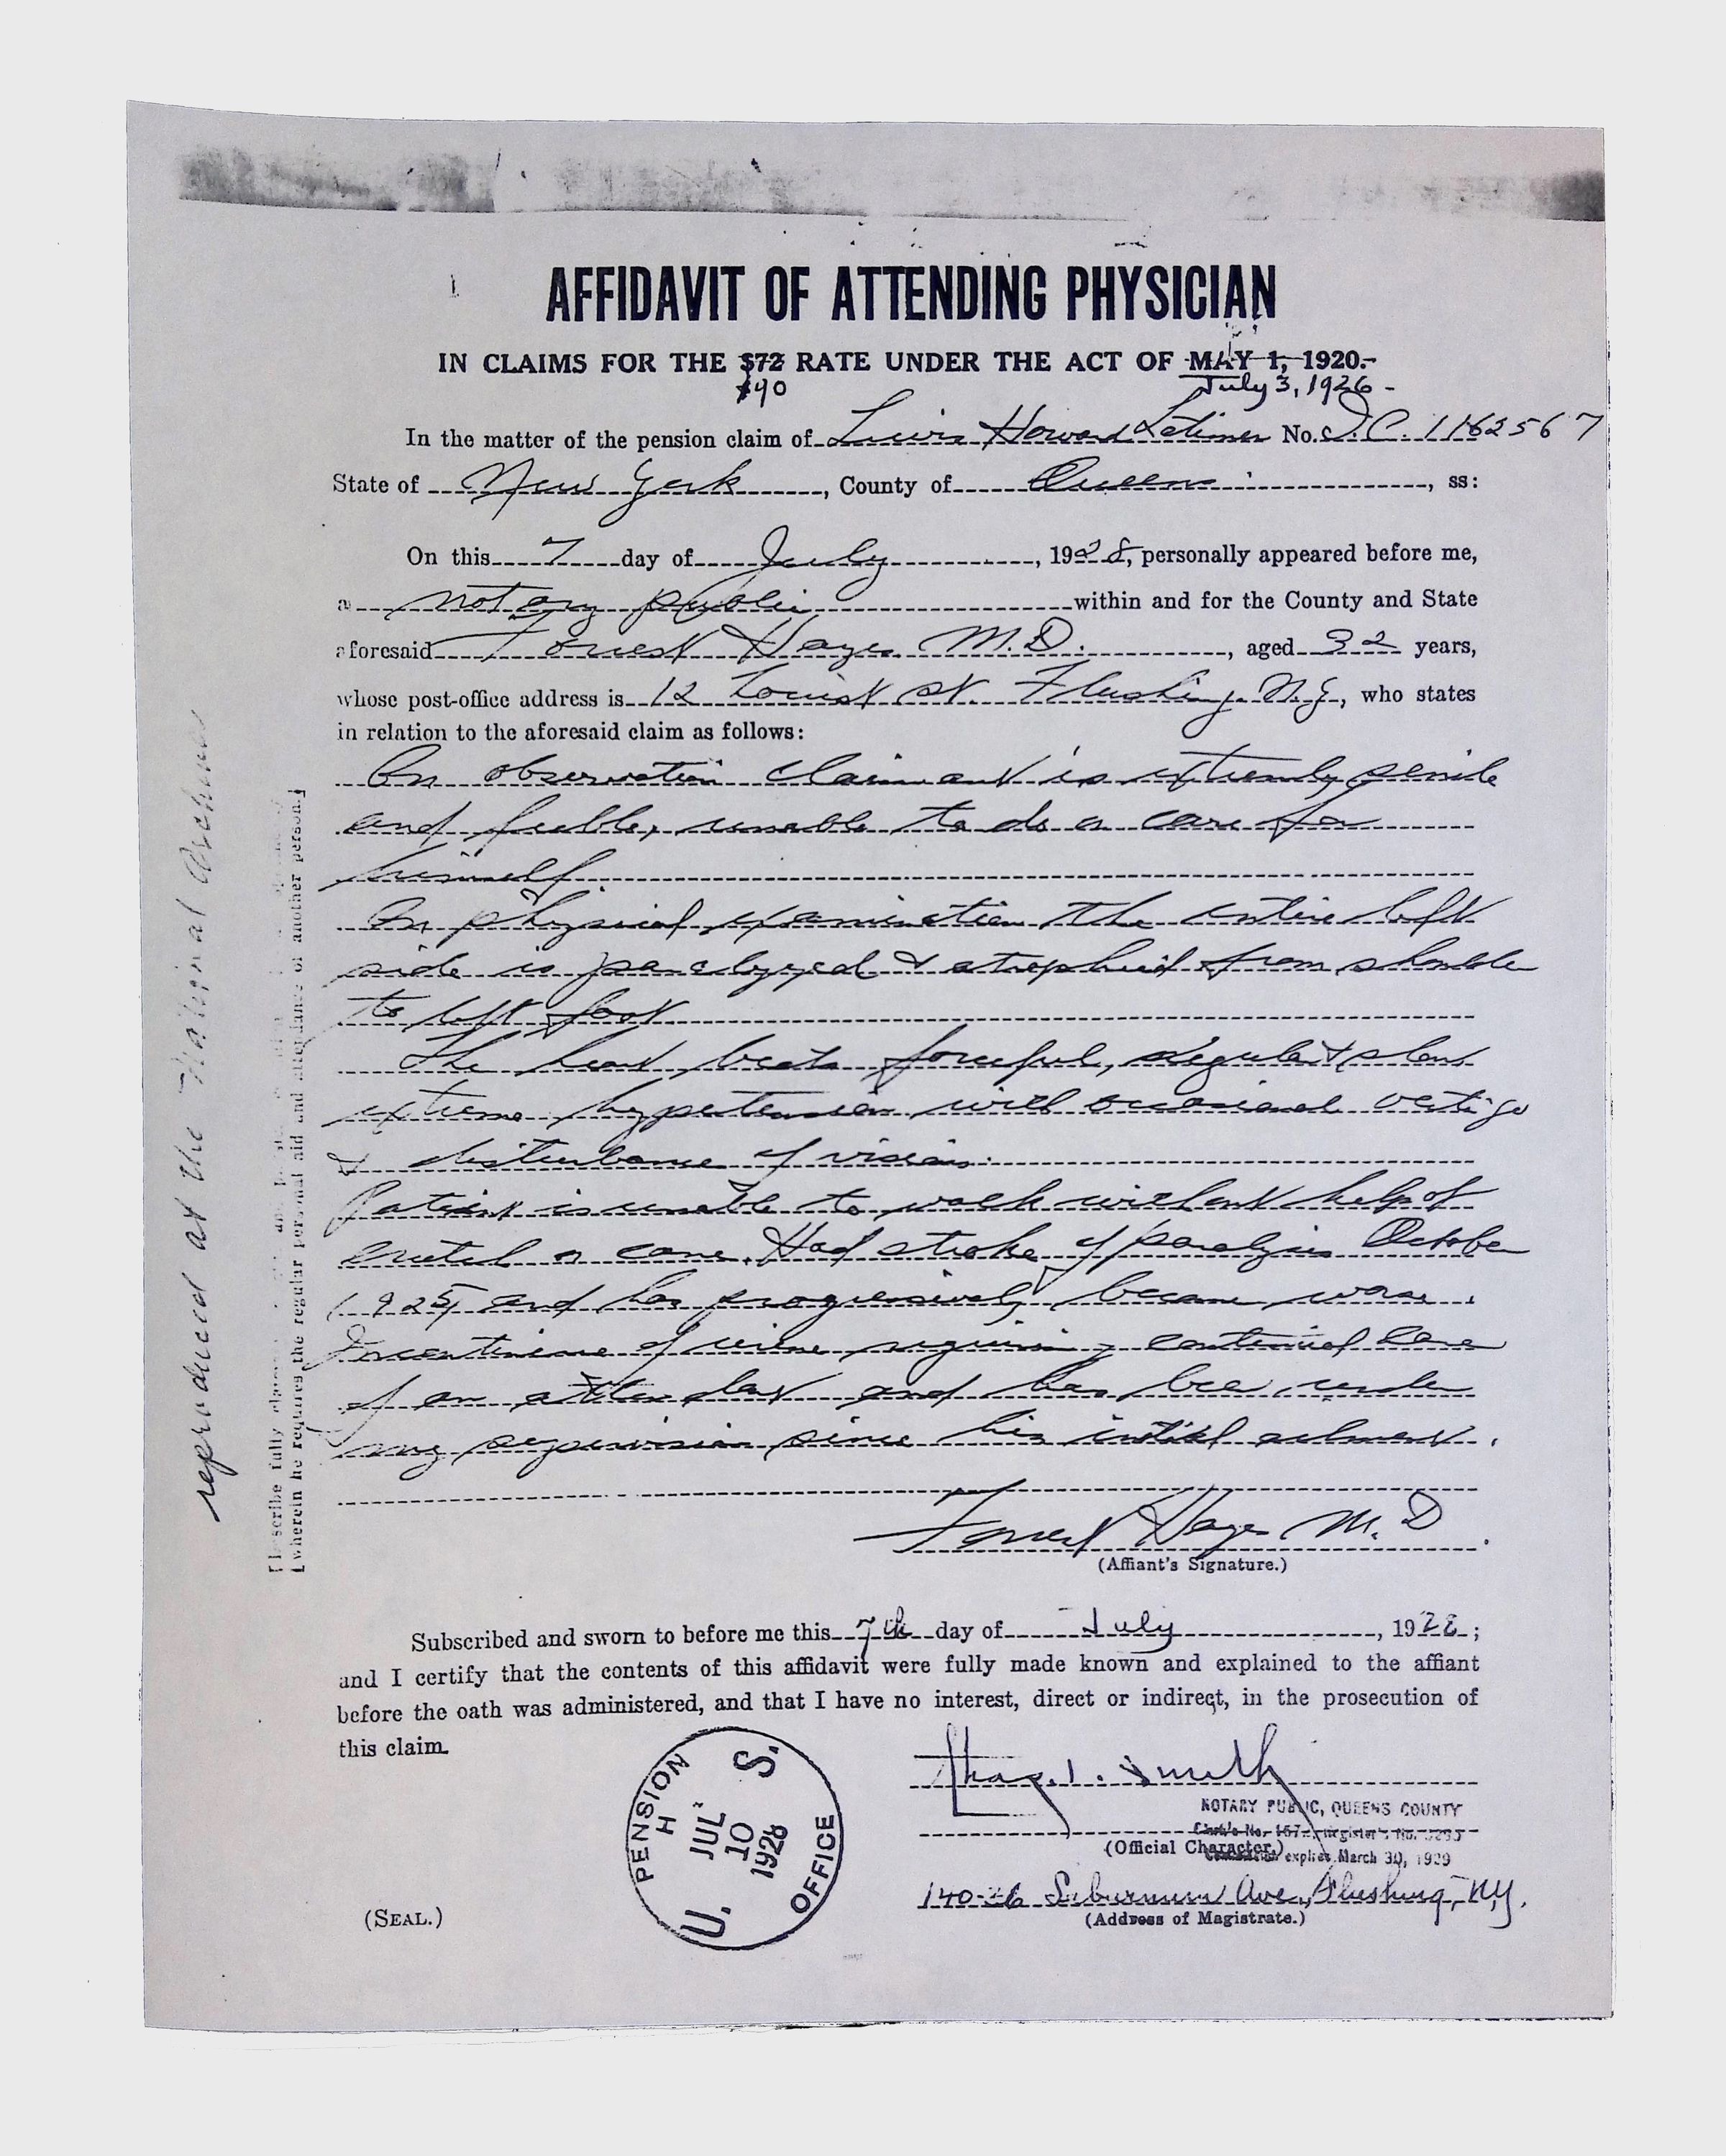 AFFIDAVIT OF ATTENDING PHYSICIAN
IN CLAIMS FOR THE $72 RATE UNDER THE ACT OF MAY 1, 1920.
$90 July 3, 1926 -
In the matter of the pension claim of Lewis Howard Latimer No. S.C. 1162567
State of New York, County of Queens, ss:
On this 7 day of July, 1928, personally appeared before me,
a notary public within and for the County and State
aforesaid Forrest Hayes M.D., aged 32 years,
whose post-office address is 12 St. Flushing, N.Y., who states
in relation to the aforesaid claim as follows:
On observation claimant is extremely senile
and feeble, unable to do or care for
himself.
On physical examination the entire left
side is paralyzed & atrophied from shoulder
to left foot
The heart beats forceful, regular & slow
extreme hypertension with occasional vertigo
& disturbance of vision.
Patient is unable to walk without help of
crutch or cane. Had stroke of paralysis October
1925 and has progressively become worse.
Incontinence of urine requiring continual care
of an attendant and has been under
my supervision since his initial ailment.
Forrest Hayes M.D.
(Affiant's Signature.)
Subscribed and sworn to before me this 7th day of July, 1928;
and I certify that the contents of this affidavit were fully made known and explained to the affiant
before the oath was administered, and that I have no interest, direct or indirect, in the prosecution of
this claim.
Smith
NOTARY PUBLIC, QUEENS COUNTY
(Official Character.)
Commission expires March 30, 1929
140-26 Ave, Flushing, N.Y.
(Address of Magistrate.)
(SEAL.)
U. S. PENSION OFFICE
H
JUL
10
1928
reproduced at the National Archives
wherein he requires the regular personal aid and attendance of another person.]
[Describe fully